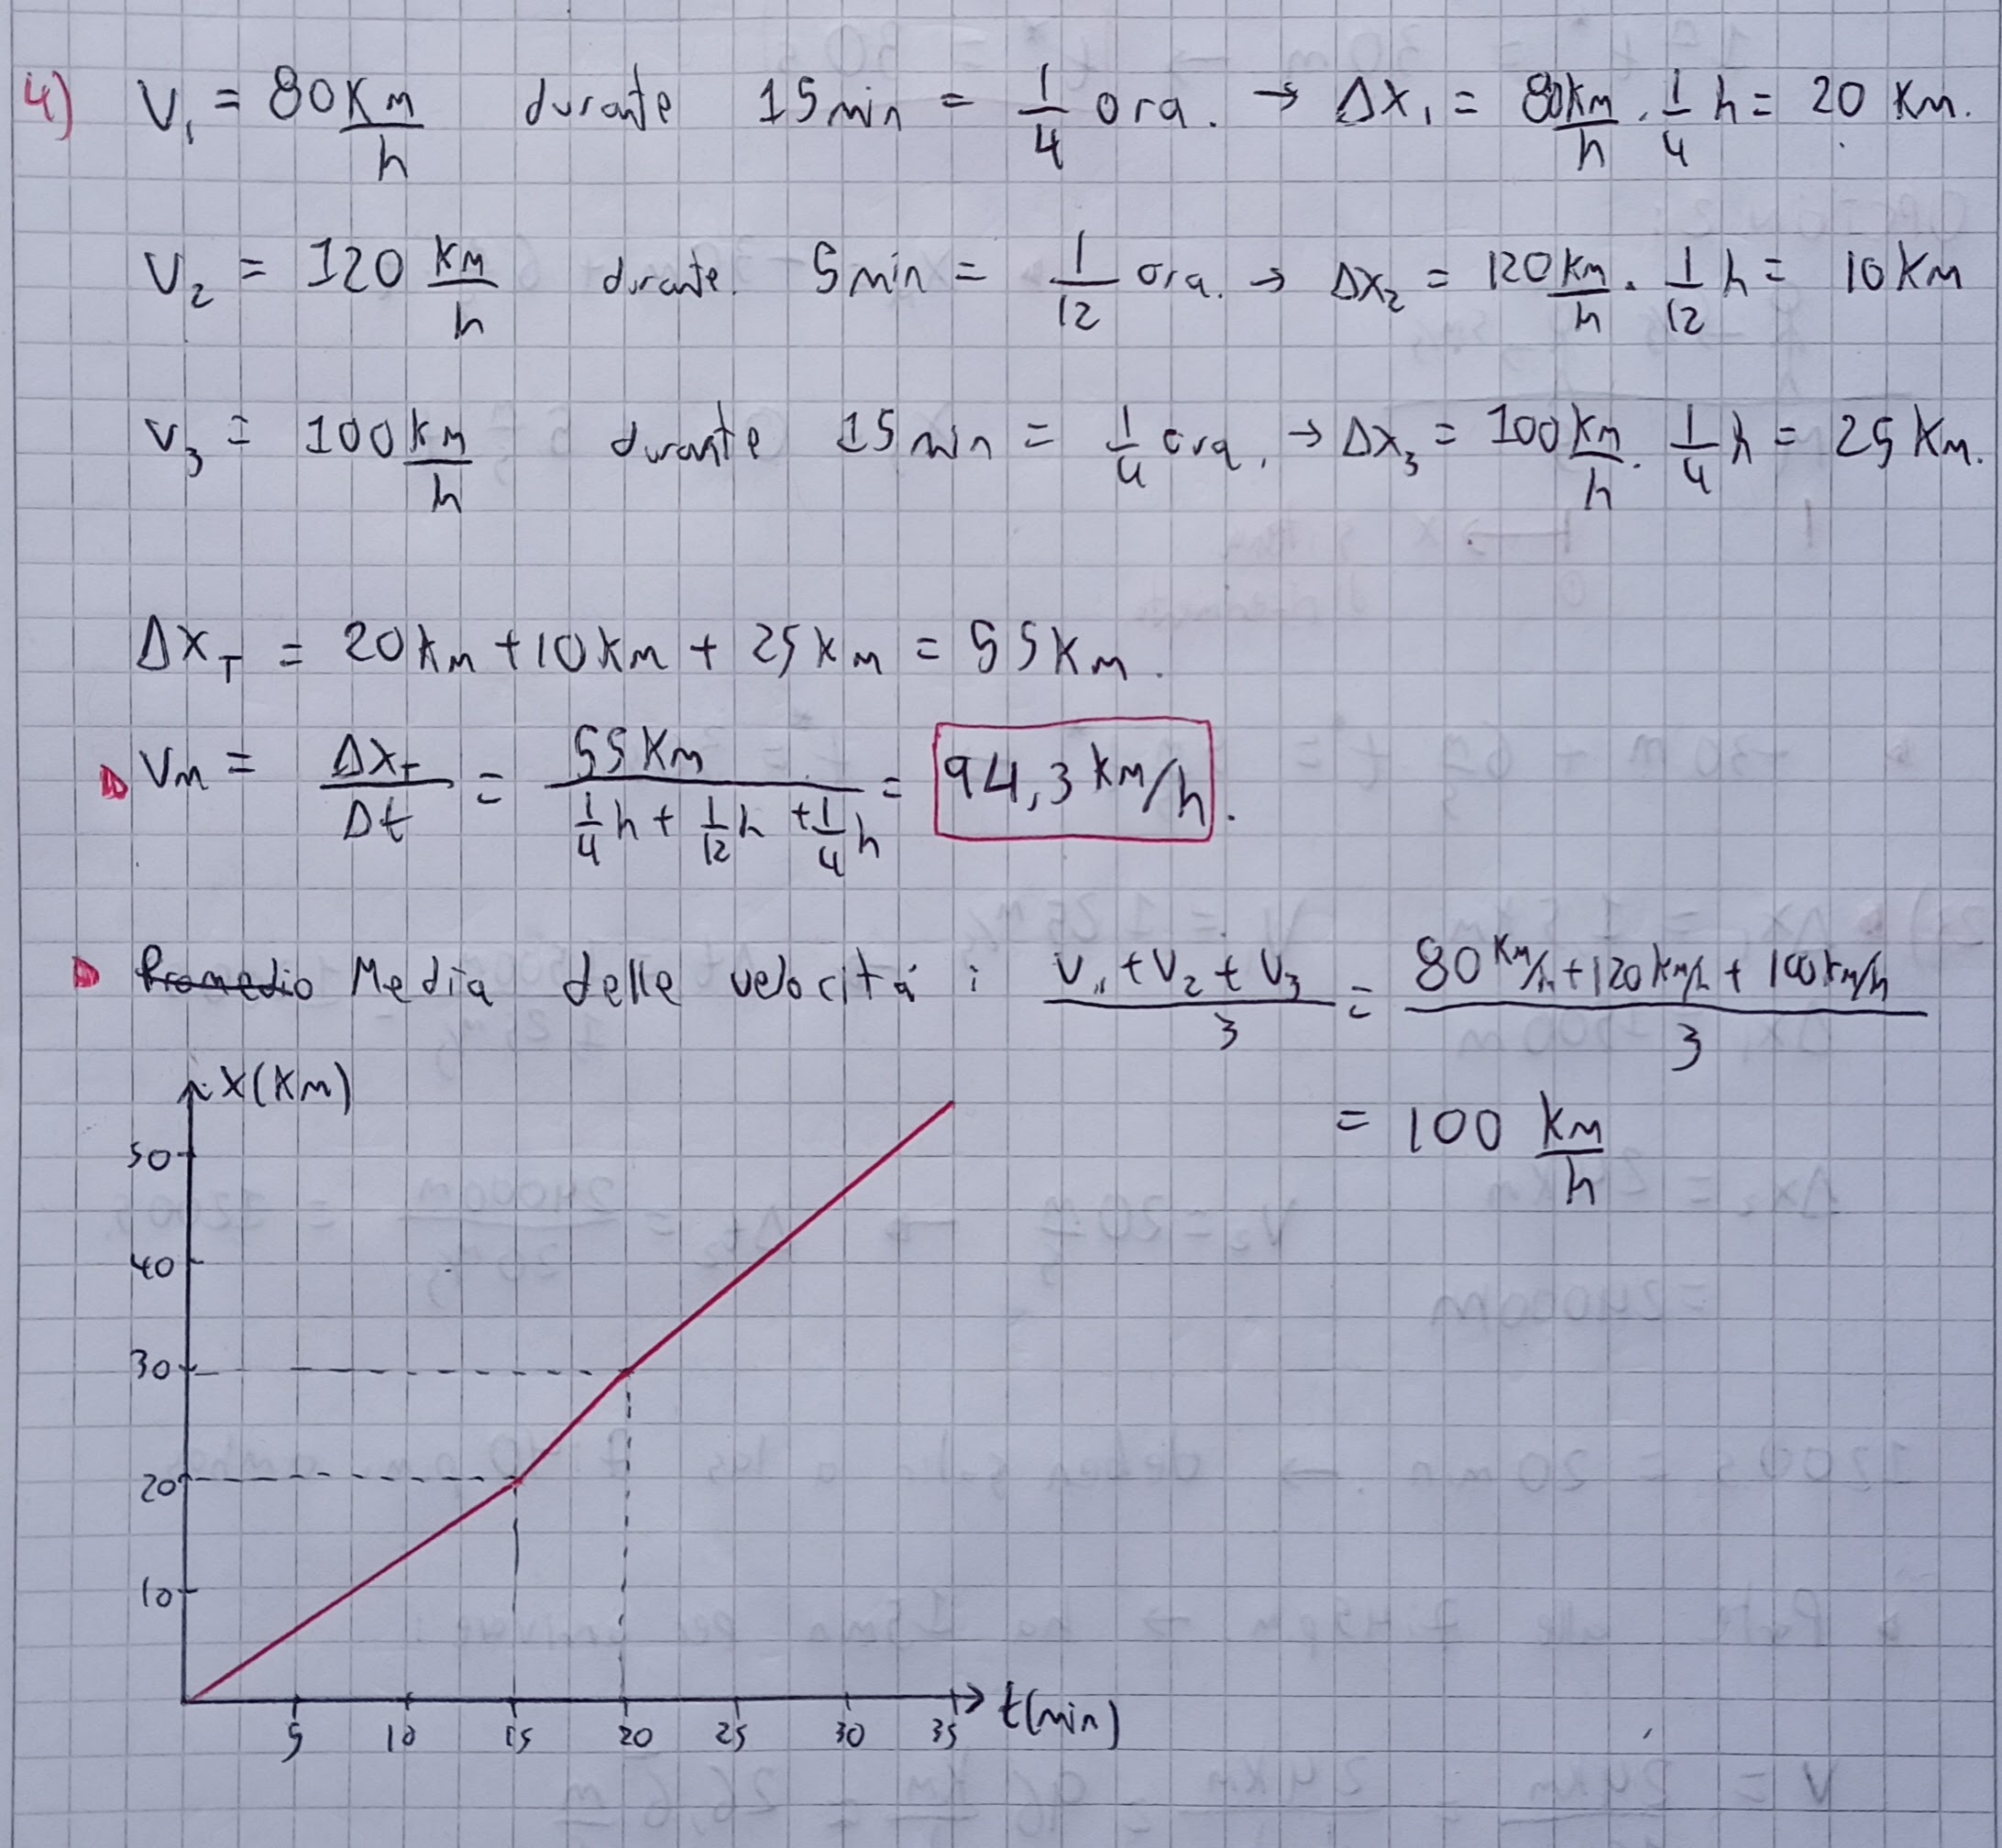 4) V₁ = 80 Km/h durante 15 min = 1/4 ora. → Δx₁ = 80 Km/h · 1/4 h = 20 Km.
V₂ = 120 Km/h durante. 5 min = 1/12 ora. → Δx₂ = 120 Km/h · 1/12 h = 10 Km
V₃ = 100 Km/h durante 15 min = 1/4 ora. → Δx₃ = 100 Km/h · 1/4 h = 25 Km.
Δx_T = 20 Km + 10 Km + 25 Km = 55 Km.
Vm = Δx_T/Δt = 55 Km/(1/4 h + 1/12 h + 1/4 h) = 94,3 Km/h.
Promedio Media delle velocitá : (V₁ + V₂ + V₃)/3 = (80 Km/h + 120 Km/h + 100 Km/h)/3
= 100 Km/h
x(Km)
50
40
30
20
10
5 10 15 20 25 30 35 t(min)